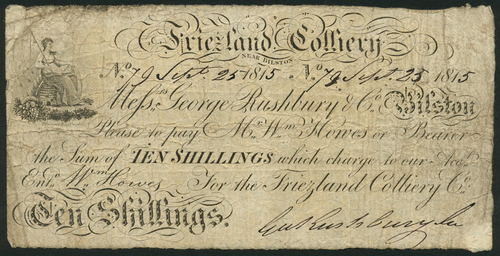 Friezland Colliery
NEAR BILSTON
No. 79 Sept. 25 1815 No. 79 Sept. 25 1815
Messrs. George Rushbury & Co. Bilston
Please to pay Mr. Wm. Howes or Bearer
the Sum of TEN SHILLINGS which charge to our Acct.
Entd. Wm. Howes For the Friezland Colliery Co.
Ten Shillings. Geo Rushbury